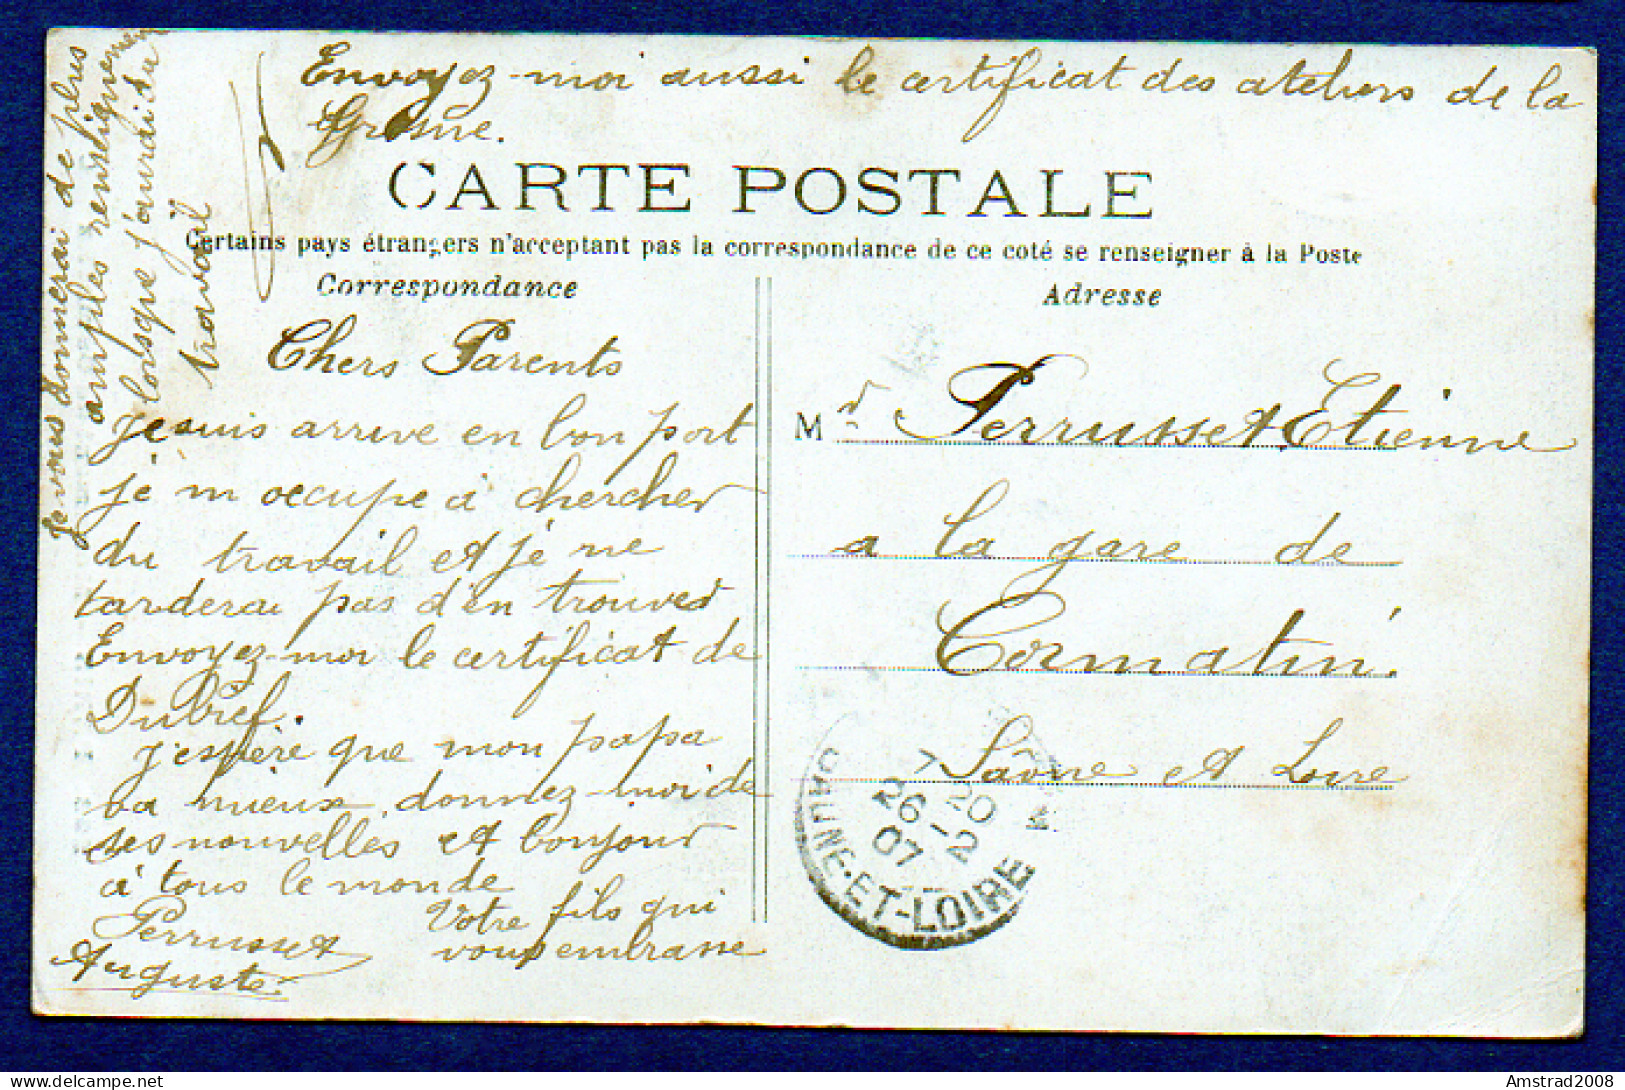 Envoyez-moi aussi le certificat des ateliers de la
Grosne.
CARTE POSTALE
Certains pays étrangers n'acceptent pas la correspondance de ce coté se renseigner à la Poste
Correspondance
Adresse
Chers Parents
je suis arrive en bon port
je m occupe à chercher
du travail et je ne
tarderai pas d'en trouver
Envoyez-moi le certificat de
Dubief.
j'espère que mon papa
va mieux, donnez-moi de
ses nouvelles et bonjour
à tous le monde
Votre fils qui
vous embrasse
Perrusset
Auguste.
Je vous donnerai de plus
amples renseignements
lorsque j'aurdi du
travail
Mr Perrusset Etienne
a la gare de
Cormatin.
Saône et Loire
7 20
26 - 2
07
SAONE-ET-LOIRE
Amstrad2008